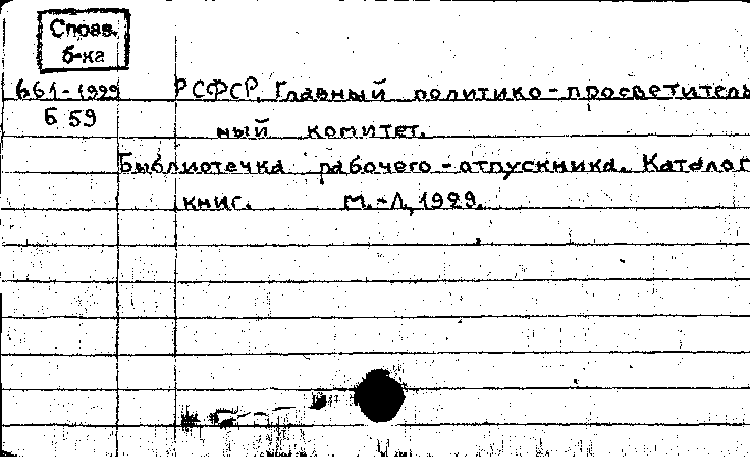 Справ.
б-ка
661-1929
Б 59
РСФСР. Главный политико-просветитель
ный комитет.
Библиотечка рабочего-отпускника. Каталог
книг. М.-Л., 1929.